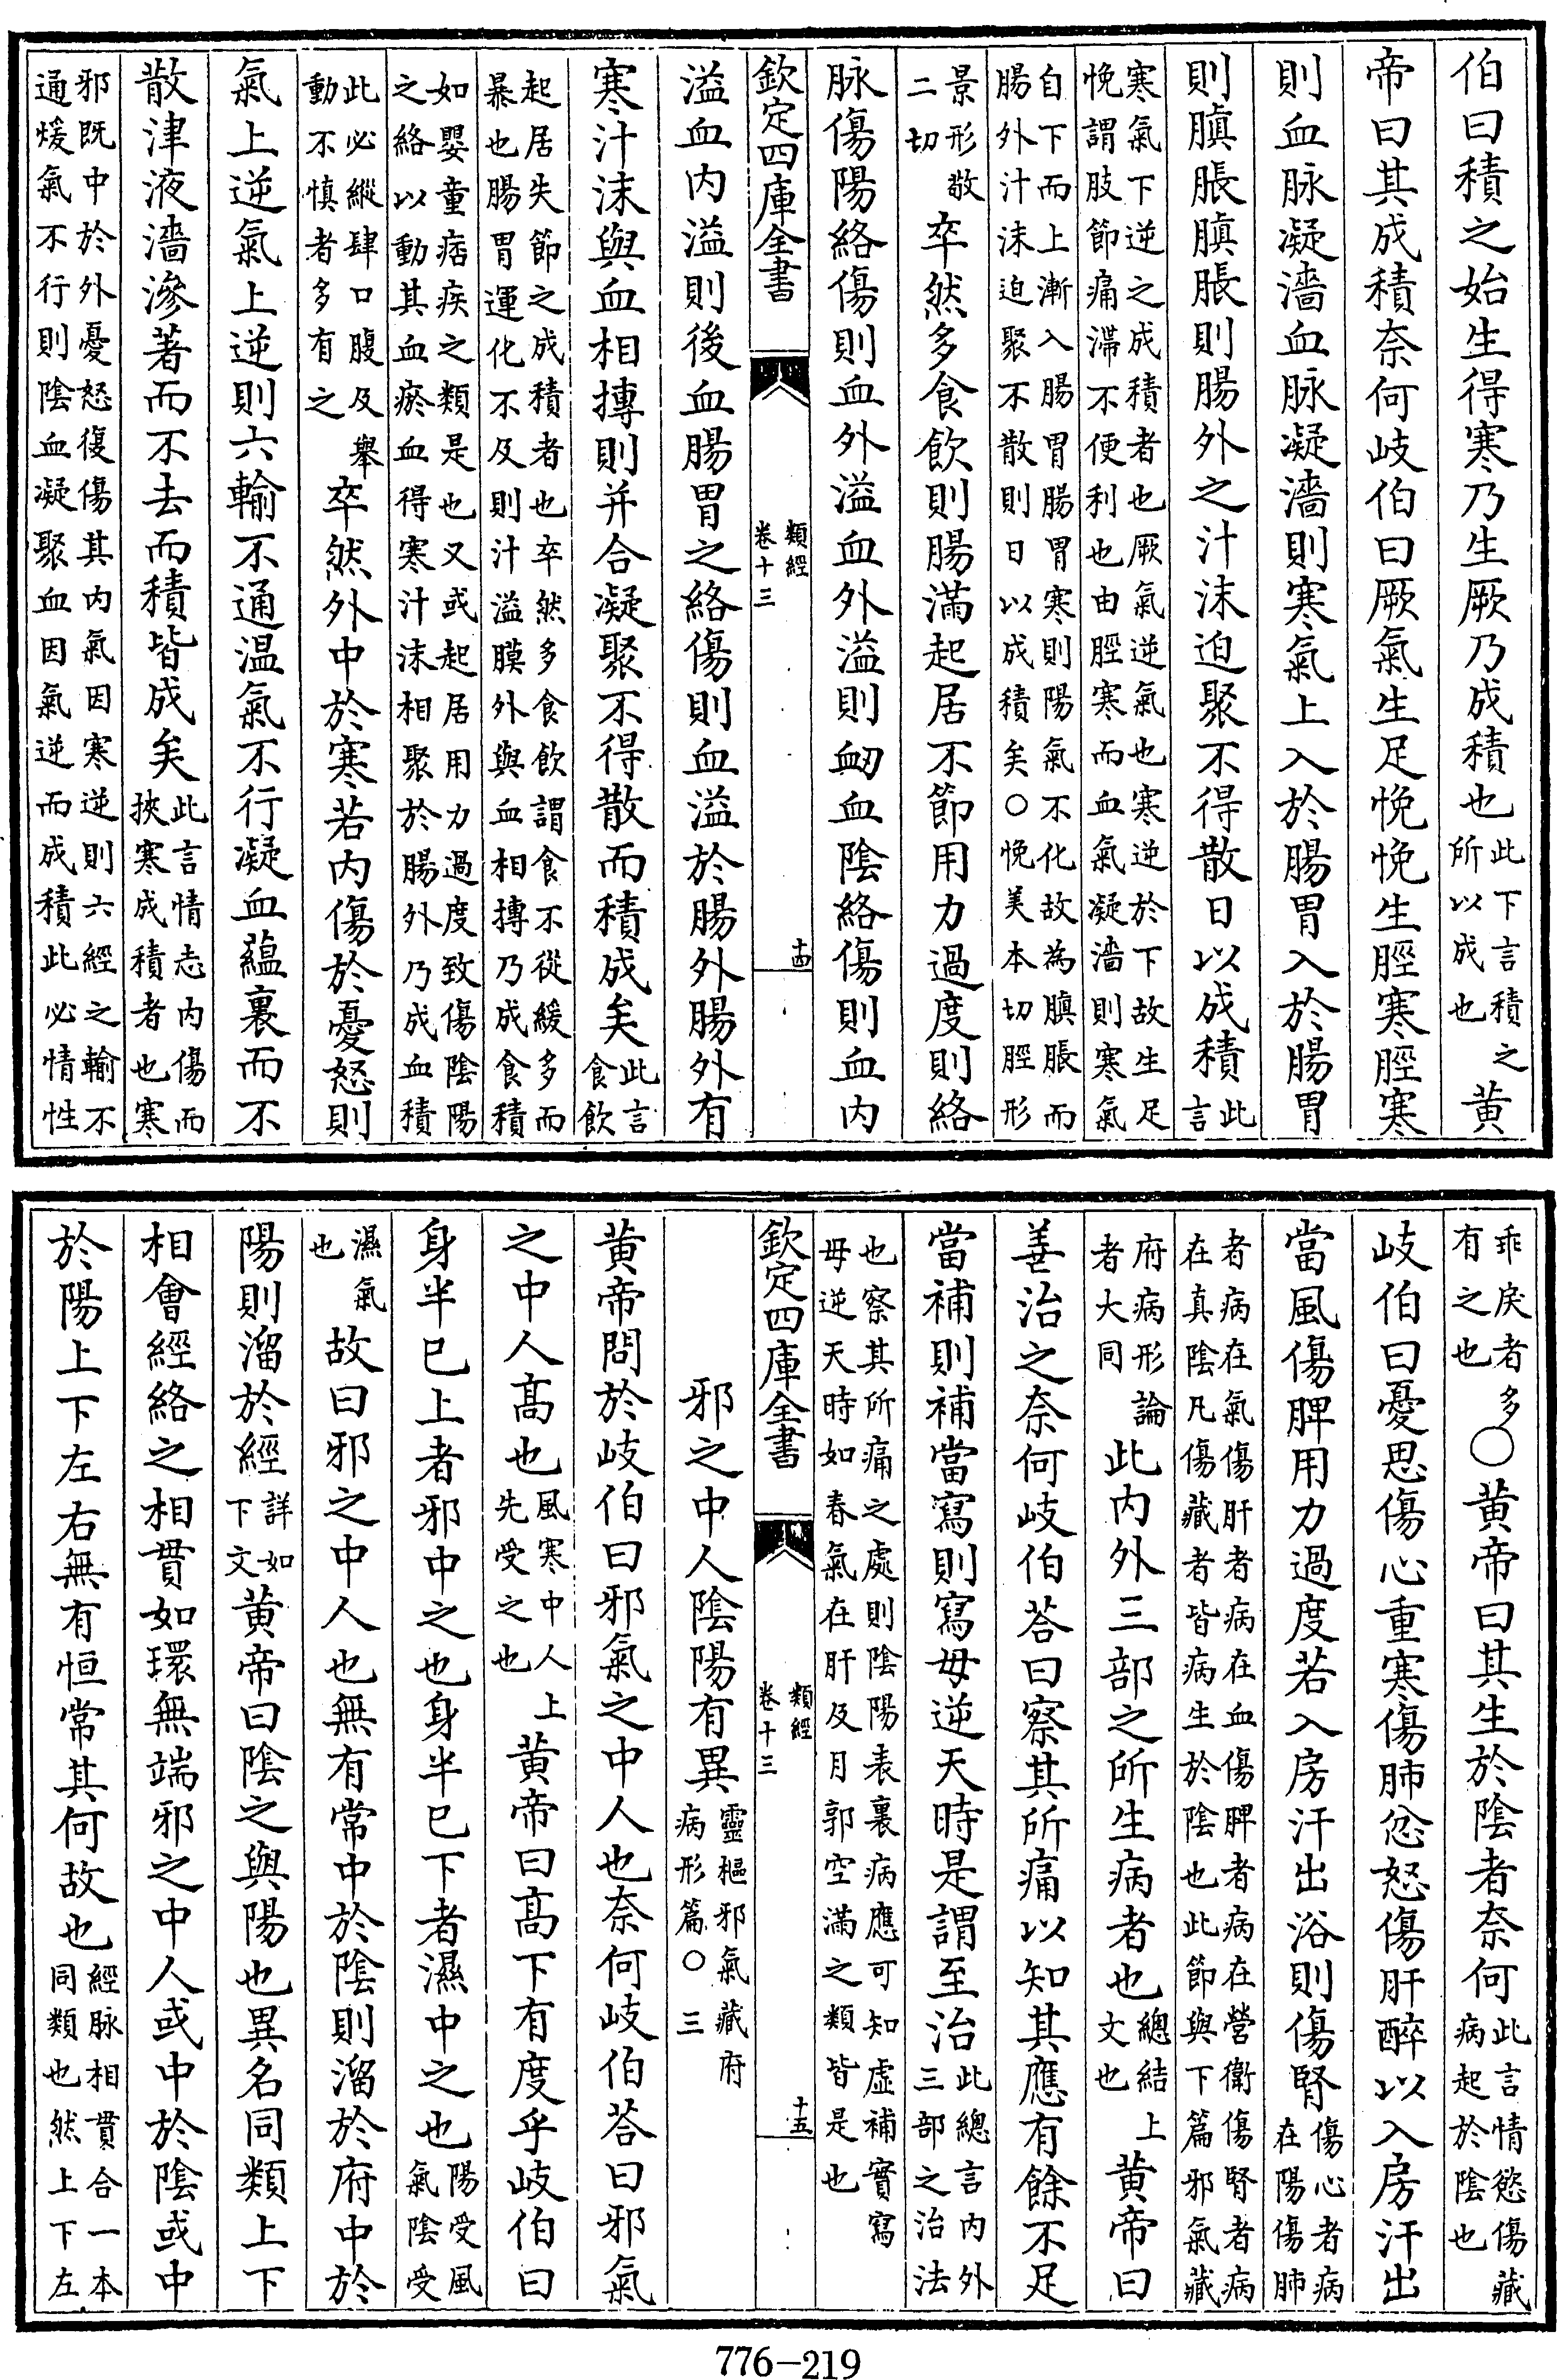 伯曰積之始生得寒乃生厥乃成積也此下言積之所以成也黄
帝曰其成積奈何岐伯曰厥氣生足悗悗生脛寒脛寒
則血脉凝濇血脉凝濇則寒氣上入於腸胃入於腸胃
則䐜脹䐜脹則腸外之汁沫迫聚不得散日以成積此言
寒氣下逆之成積者也厥氣逆氣也寒逆於下故生足
悗謂肢節痛滯不便利也由脛寒而血氣凝濇則寒氣
自下而上漸入腸胃腸胃寒則陽氣不化故為䐜脹而
腸外汁沫迫聚不散則日以成積矣○悗美本切脛形
景形敬二切卒然多食飲則腸滿起居不節用力過度則絡
脉傷陽絡傷則血外溢血外溢則衂血陰絡傷則血内
欽定四庫全書
類經
卷十三
十四
溢血内溢則後血腸胃之絡傷則血溢於腸外腸外有
寒汁沫與血相摶則并合凝聚不得散而積成矣此言食飲
起居失節之成積者也卒然多食飲謂食不從緩多而
暴也腸胃運化不及則汁溢膜外與血相摶乃成食積
如嬰童痞疾之類是也又或起居用力過度致傷陰陽
之絡以動其血瘀血得寒汁沫相聚於腸外乃成血積
此必縱肆口腹及舉動不慎者多有之卒然外中於寒若内傷於憂怒則
氣上逆氣上逆則六輸不通温氣不行凝血蘊裏而不
散津液濇滲著而不去而積皆成矣此言情志内傷而挾寒成積者也寒
邪既中於外憂怒復傷其内氣因寒逆則六經之輸不
通煖氣不行則陰血凝聚血因氣逆而成積此必情性
乖戾者多有之也○黄帝曰其生於陰者奈何此言情慾傷藏病起於陰也
岐伯曰憂思傷心重寒傷肺忿怒傷肝醉以入房汗出
當風傷脾用力過度若入房汗出浴則傷腎傷心者病在陽傷肺
者病在氣傷肝者病在血傷脾者病在營衛傷腎者病
在真陰凡傷藏者皆病生於陰也此節與下篇邪氣藏
府病形論者大同此内外三部之所生病者也總結上文也黄帝曰
善治之奈何岐伯荅曰察其所痛以知其應有餘不足
當補則補當寫則寫毋逆天時是謂至治此總言内外三部之治法
也察其所痛之處則陰陽表裏病應可知虚補實寫
毋逆天時如春氣在肝及月郭空滿之類皆是也
欽定四庫全書
類經
卷十三
十五
邪之中人陰陽有異靈樞邪氣藏府病形篇○三
黄帝問於岐伯曰邪氣之中人也奈何岐伯荅曰邪氣
之中人髙也風寒中人上先受之也黄帝曰髙下有度乎岐伯曰
身半已上者邪中之也身半已下者濕中之也陽受風氣陰受
濕氣也故曰邪之中人也無有常中於陰則溜於府中於
陽則溜於經詳如下文黄帝曰陰之與陽也異名同類上下
相會經絡之相貫如環無端邪之中人或中於陰或中
於陽上下左右無有恒常其何故也經脉相貫合一本同類也然上下左
776-219